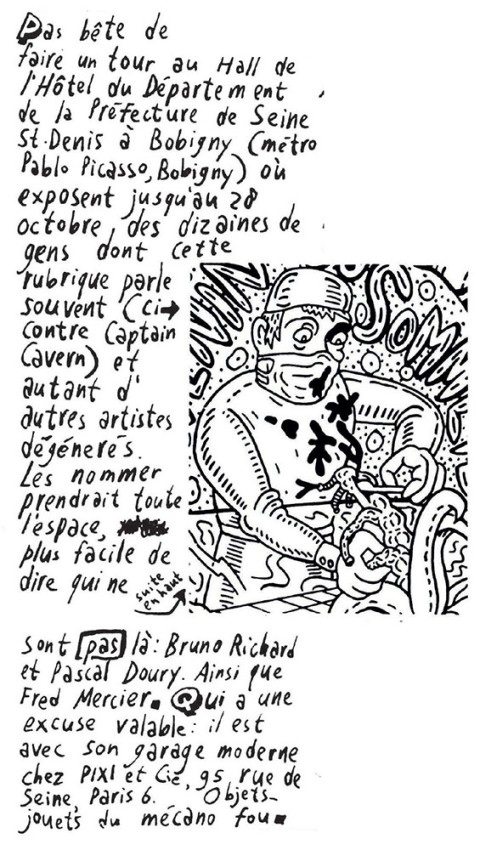 Pas bête de
faire un tour au Hall de
l'Hôtel du Département
de la Préfecture de Seine
St-Denis à Bobigny (métro
Pablo Picasso, Bobigny) où
exposent jusqu'au 28
octobre, des dizaines de
gens dont cette
rubrique parle
souvent (ci→
contre Captain
Cavern) et
autant d'
autres artistes
dégénerés.
Les nommer
prendrait toute
l'espace,
plus facile de
dire qui ne
suite
en haut
sont pas là: Bruno Richard
et Pascal Doury. Ainsi que
Fred Mercier. Qui a une
excuse valable: il est
avec son garage moderne
chez PIXI et Cie, 95, rue de
Seine, Paris 6. Objets-
jouets du mécano fou.